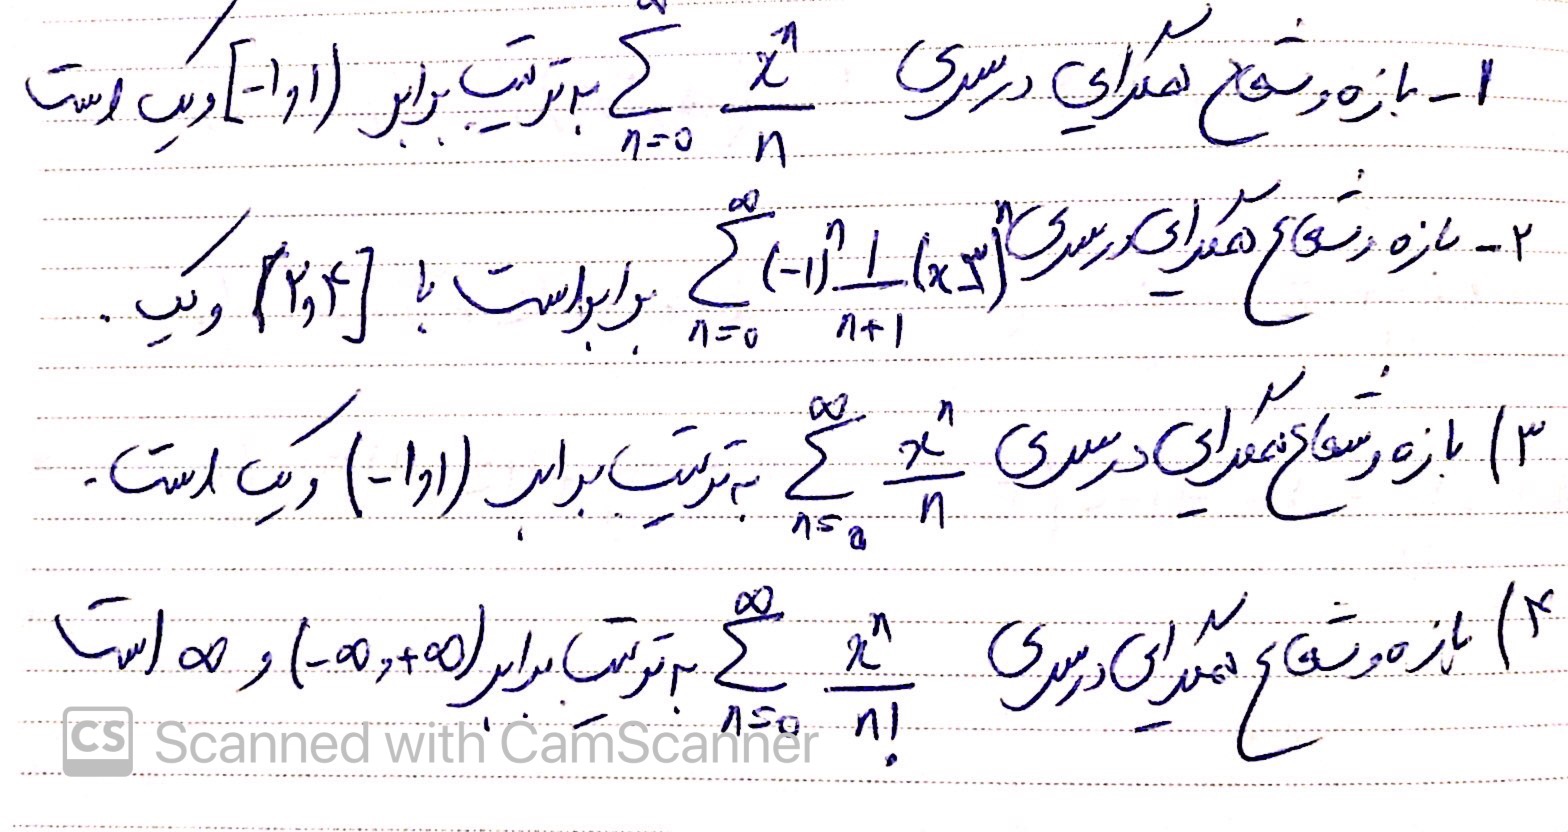 ۱- بازه و شعاع همگرایی در سری \sum_{n=0}^{\infty} \frac{x^n}{n} به ترتیب برابر [-۱,۱) و یک است
۲- بازه و شعاع همگرایی در سری \sum_{n=0}^{\infty} (-1)^n \frac{1}{n+1} (x-۳)^n برابر است با [۲,۴] و یک.
۳) بازه و شعاع همگرایی در سری \sum_{n=0}^{\infty} \frac{x^n}{n} به ترتیب برابر (-۱,۱) و یک است.
۴) بازه و شعاع همگرایی در سری \sum_{n=0}^{\infty} \frac{x^n}{n!} به ترتیب برابر (-∞,+∞) و ∞ است
CS Scanned with CamScanner